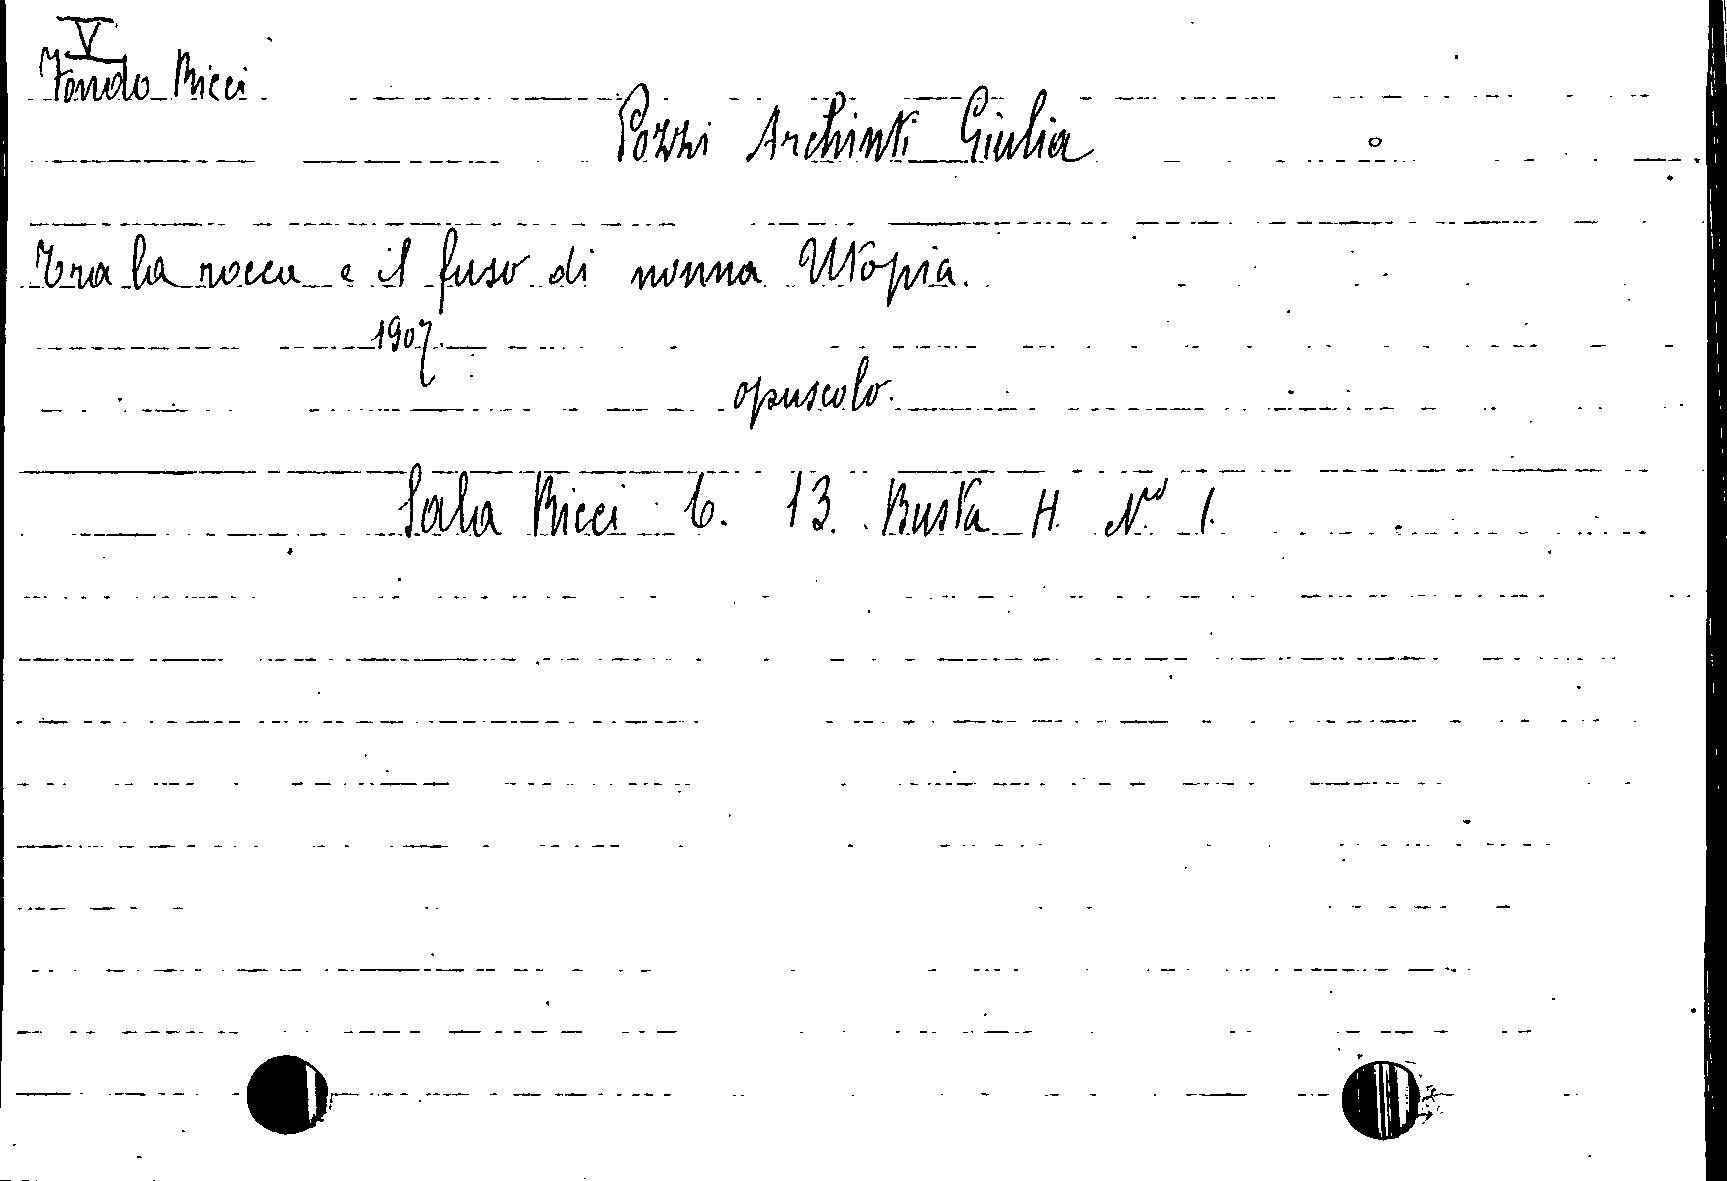 V
Fondo Ricci
Pozzi Archinti Giulia
Tra la rocca e il fuso di nonna Utopia.
1907.
opuscolo.
Sala Ricci 6. 13. Busta H. N.ro 1.